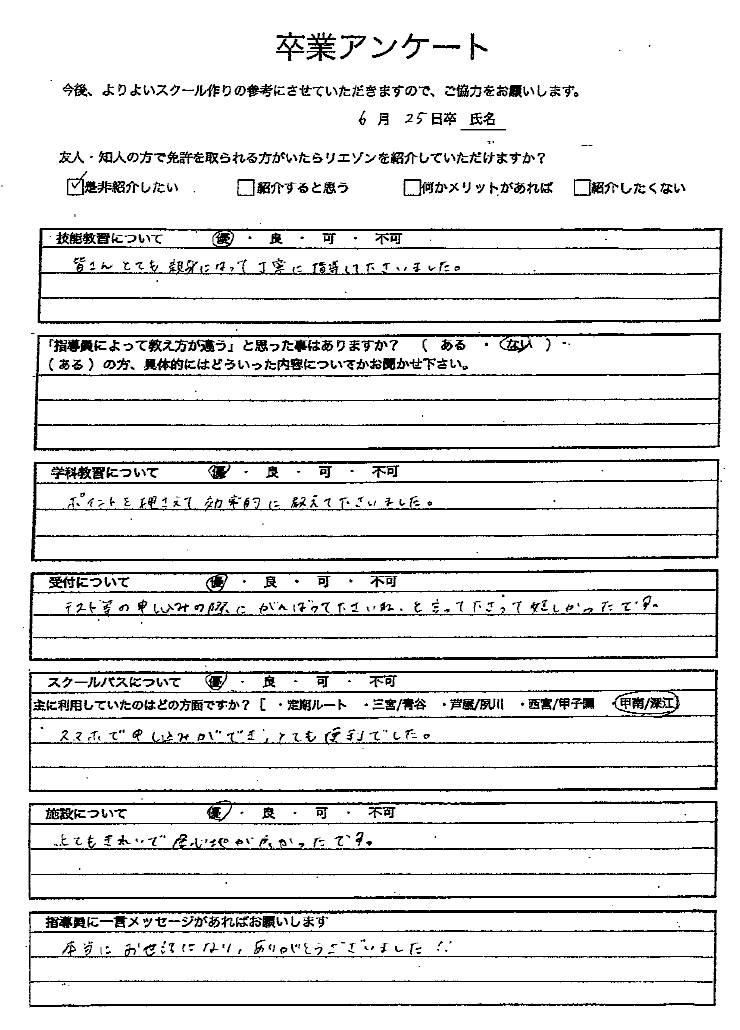 卒業アンケート
今後、よりよいスクール作りの参考にさせていただきますので、ご協力をお願いします。
6月 25日卒 氏名
友人・知人の方で免許を取られる方がいたらリエゾンを紹介していただけますか?
☑是非紹介したい □紹介すると思う □何かメリットがあれば □紹介したくない
技能教習について 優 ・ 良 ・ 可 ・ 不可
皆さんとても親身になって丁寧に指導して下さいました。
「指導員によって教え方が違う」と思った事はありますか? ( ある ・ ない )
( ある ) の方、具体的にはどういった内容についてかお聞かせ下さい。
学科教習について 優 ・ 良 ・ 可 ・ 不可
ポイントを押さえて効率的に教えて下さいました。
受付について 優 ・ 良 ・ 可 ・ 不可
テスト等の申し込みの際にがんばって下さいね、と言って下さって嬉しかったです。
スクールバスについて 優 ・ 良 ・ 可 ・ 不可
主に利用していたのはどの方面ですか? [ ・定期ルート ・三宮/青谷 ・芦屋/夙川 ・西宮/甲子園 ・甲南/深江
スマホで申し込みができ、とても便利でした。
施設について 優 ・ 良 ・ 可 ・ 不可
とてもきれいで居心地が良かったです。
指導員に一言メッセージがあればお願いします
本当にお世話になり、ありがとうございました!!